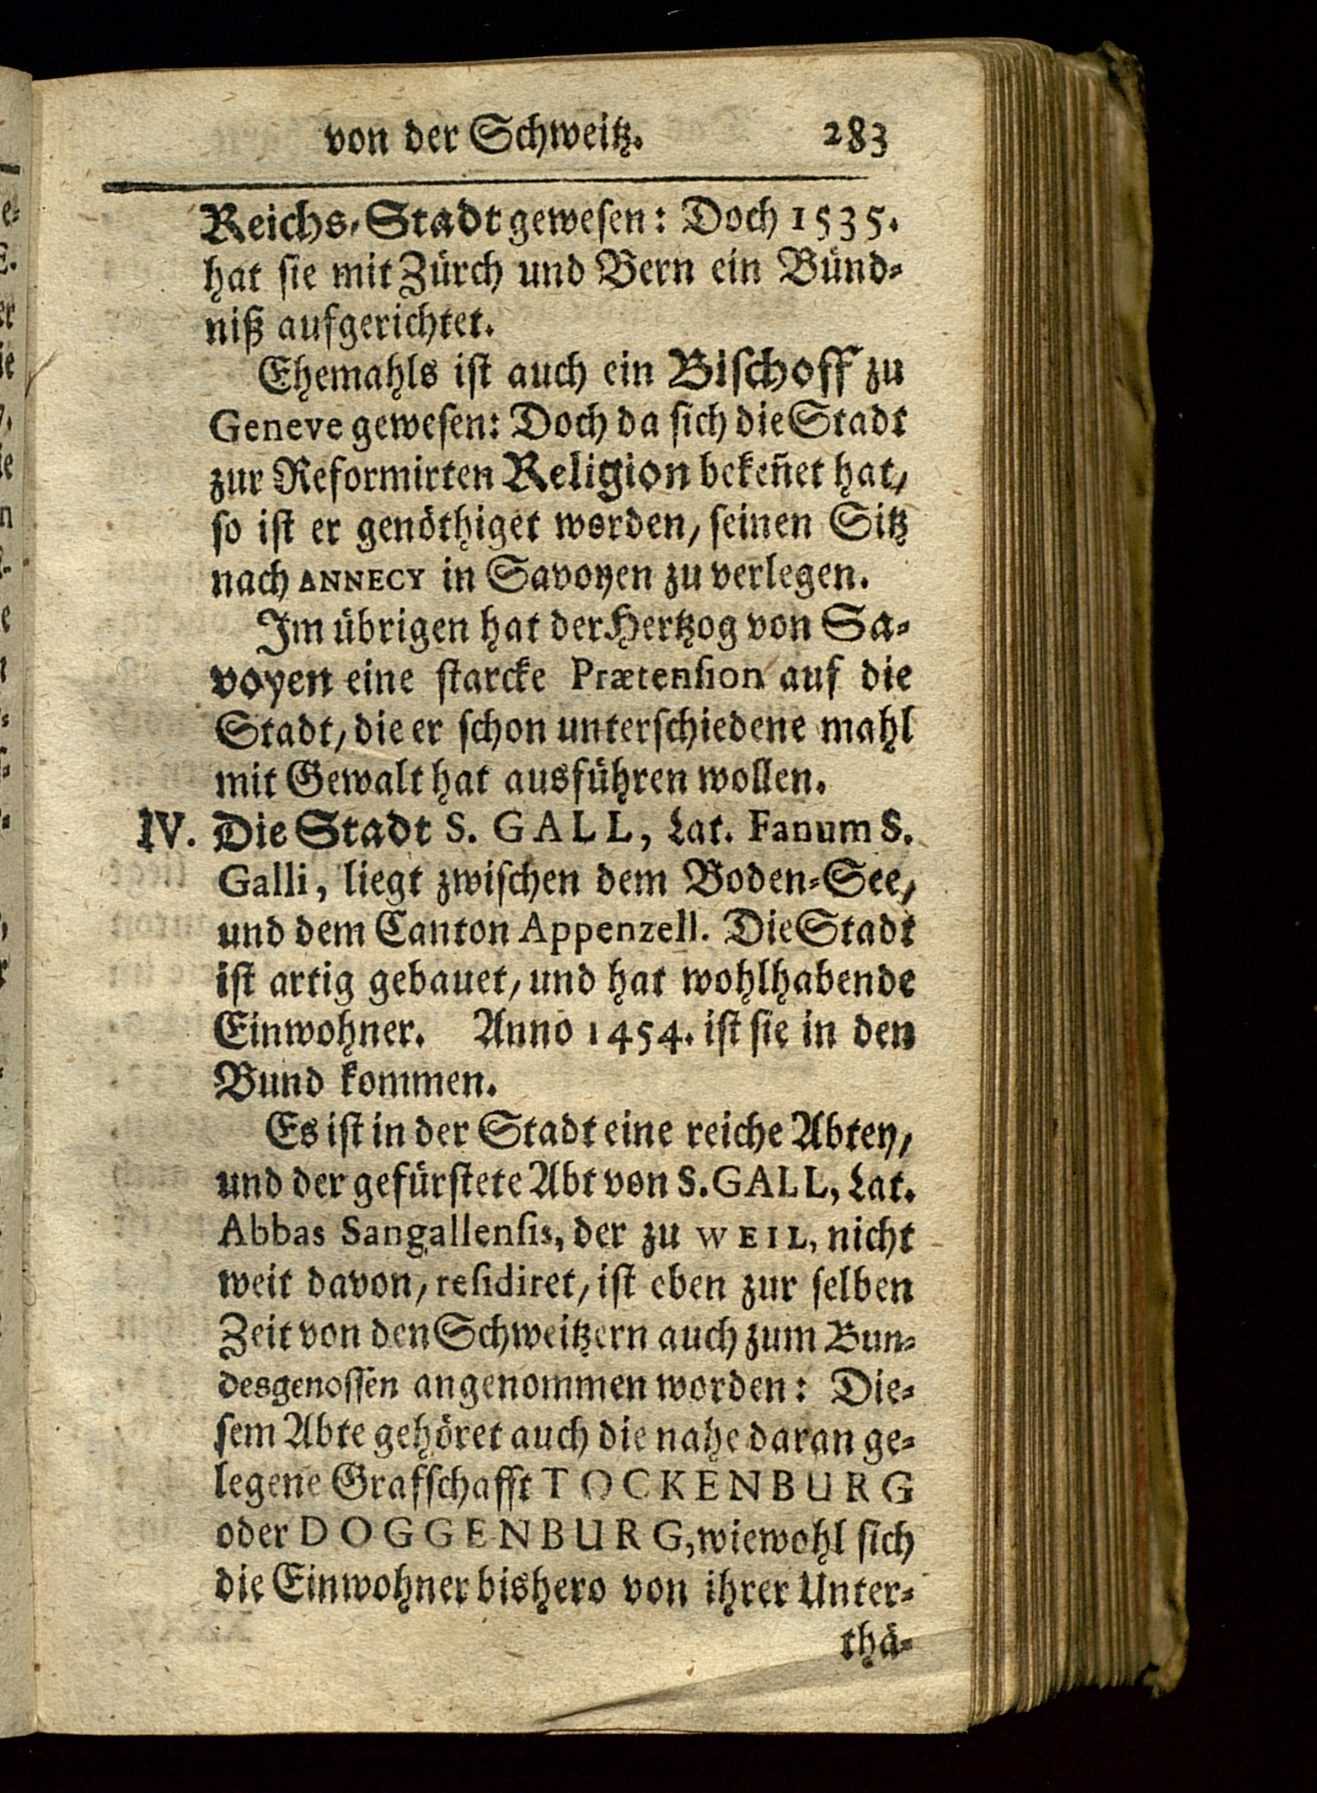 von der Schweitz. 283
Reichs-Stadt gewesen: Doch 1535.
hat sie mit Zürch und Bern ein Bünd-
niß aufgerichtet.
Ehemahls ist auch ein Bischoff zu
Geneve gewesen: Doch da sich die Stadt
zur Reformirten Religion bekeñet hat/
so ist er genöthiget worden/ seinen Sitz
nach ANNECY in Savoyen zu verlegen.
Im übrigen hat der Hertzog von Sa-
voyen eine starcke Prætension auf die
Stadt/ die er schon unterschiedene mahl
mit Gewalt hat ausführen wollen.
IV. Die Stadt S. GALL, Lat. Fanum S.
Galli, liegt zwischen dem Boden-See/
und dem Canton Appenzell. Die Stadt
ist artig gebauet/ und hat wohlhabende
Einwohner. Anno 1454. ist sie in den
Bund kommen.
Es ist in der Stadt eine reiche Abtey/
und der gefürstete Abt von S. GALL, Lat.
Abbas Sangallensis, der zu WEIL, nicht
weit davon/ residiret/ ist eben zur selben
Zeit von den Schweitzern auch zum Bun-
desgenossen angenommen worden: Die-
sem Abte gehöret auch die nahe daran ge-
legene Grafschafft TOCKENBURG
oder DOGGENBURG, wiewohl sich
die Einwohner bishero von ihrer Unter-
thä-